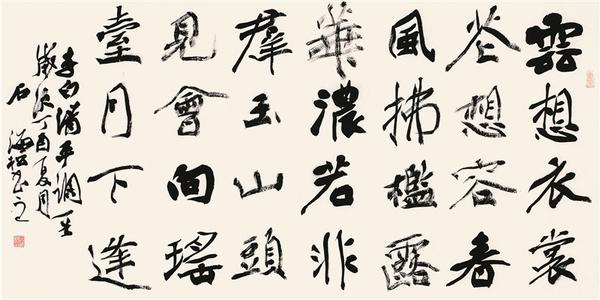 雲想衣裳
花想容春
風拂檻露
華濃若非
羣玉山頭
見會向瑤
臺月下逢
李白清平調一首
歲次丁酉夏月
石海松書